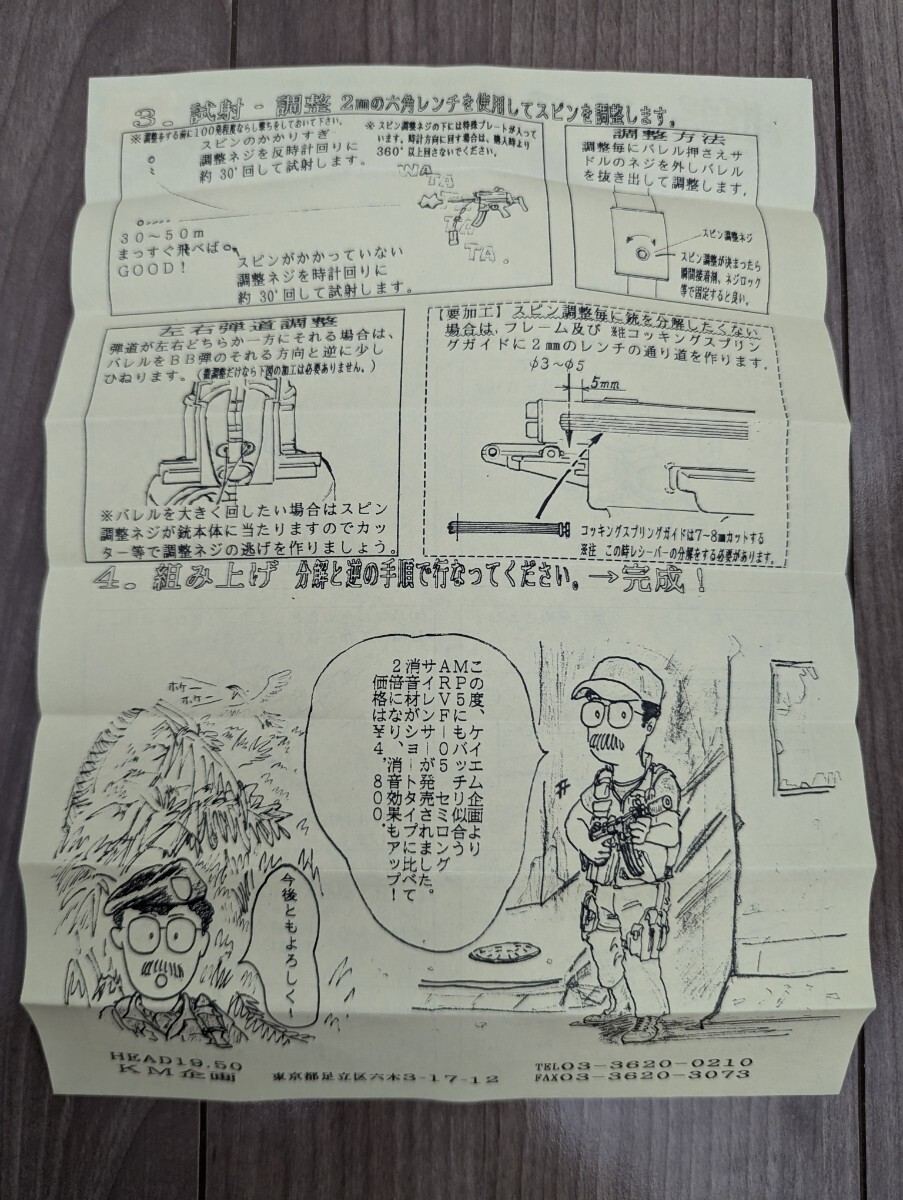 3. 試射・調整 2㎜の六角レンチを使用してスピンを調整します。
※調整をする前に100発程度ならし撃ちをしておいて下さい。
スピンのかかりすぎ
調整ネジを反時計回りに
約30°回して試射します。
※スピン調整ネジの下には特殊プレートが入って
います。時計方向に回す場合は、購入時より
360°以上回さないでください。
WA
TA
TA
TA
TA.
30～50m
まっすぐ飛べば
GOOD!
スピンがかかっていない
調整ネジを時計回りに
約30°回して試射します。
調整方法
調整毎にバレル押さえサ
ドルのネジを外しバレル
を抜き出して調整します。
スピン調整ネジ
スピン調整が決まったら
瞬間接着剤、ネジロック
等で固定すると良い。
左右弾道調整
弾道が左右どちらか一方にそれる場合は、
バレルをBB弾のそれる方向と逆に少し
ひねります。(微調整だけなら下図の加工は必要ありません。)
※バレルを大きく回したい場合はスピン
調整ネジが銃本体に当たりますのでカッ
ター等で調整ネジの逃げを作りましょう。
【要加工】スピン調整毎に銃を分解したくない
場合は、フレーム及び ※注コッキングスプリン
グガイドに2㎜のレンチの通り道を作ります.
φ3～φ5
5mm
コッキングスプリングガイドは7～8㎜カットする
※注 この時レシーバーの分解をする必要があります。
4. 組み上げ 分解と逆の手順で行なってください。→完成!
ホケー
ホケー
この度、ケイエム企画より
MP5にもバッチリ似合う
ARVF-05 セミロング
サイレンサーが発売されました。
消音材がショートタイプに比べて
2倍になり、消音効果もアップ!
価格は¥4,800.
今後ともよろしく～
HEAD19.50
KM企画
東京都足立区六木3-17-12
TEL03-3620-0210
FAX03-3620-3073